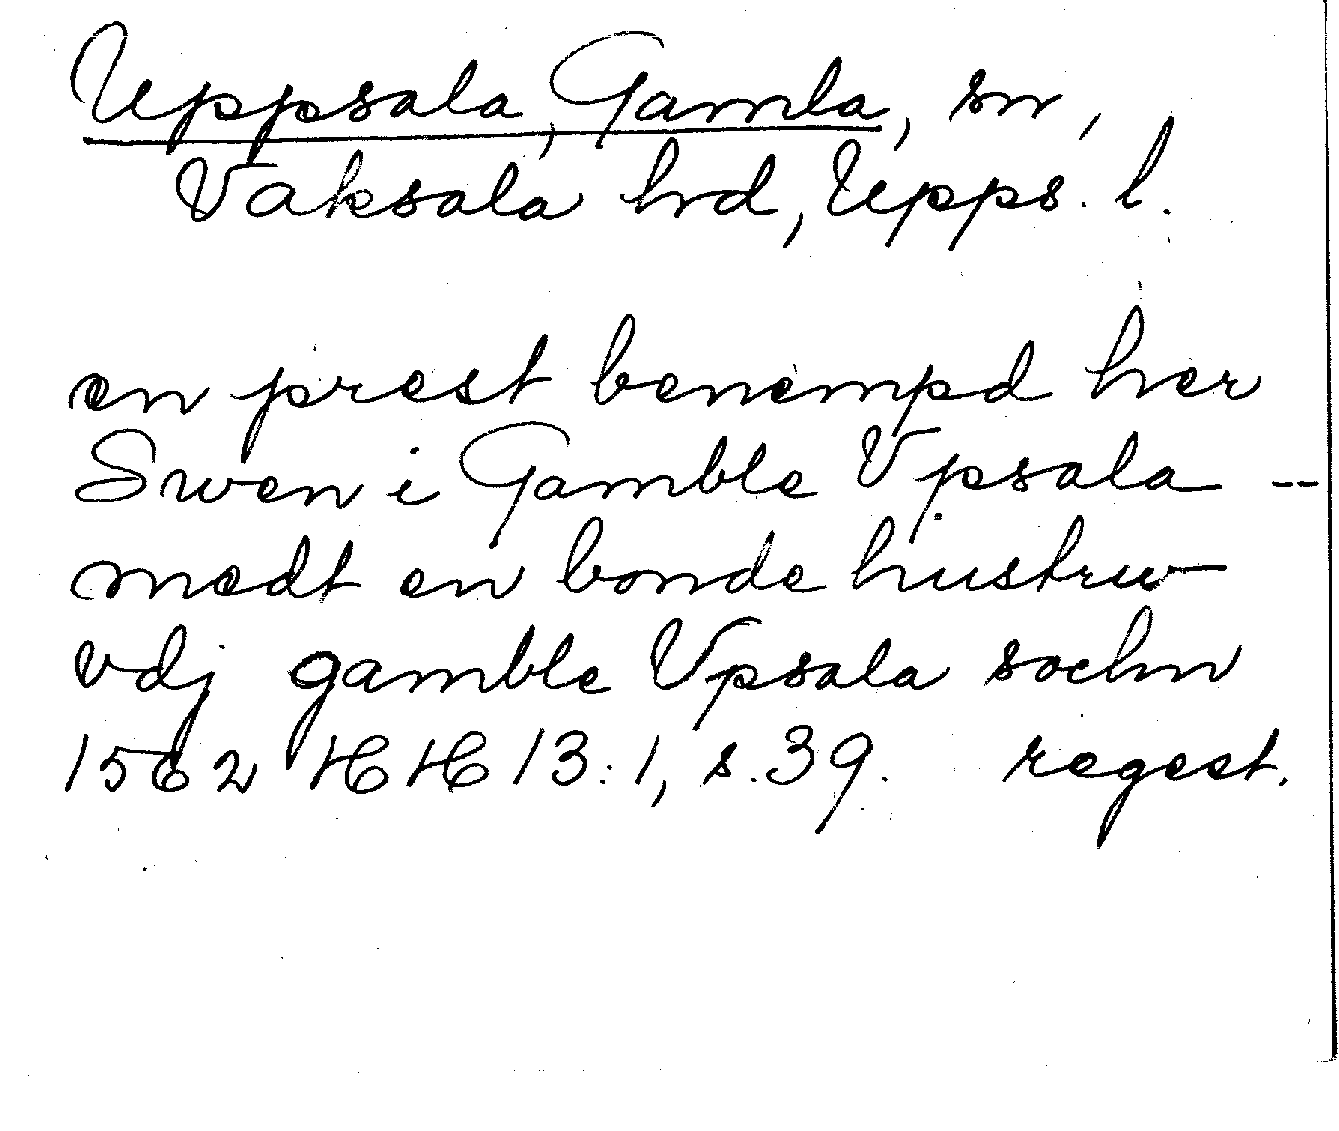 Uppsala, Gamla, sn,
Vaksala hrd, Upps. l.
en prest benempd her
Swen i Gamble Vpsala --
medt en bonde hustrw
vdj gamble Vpsala sochn
1562 HH 13:1, s. 39. regest.